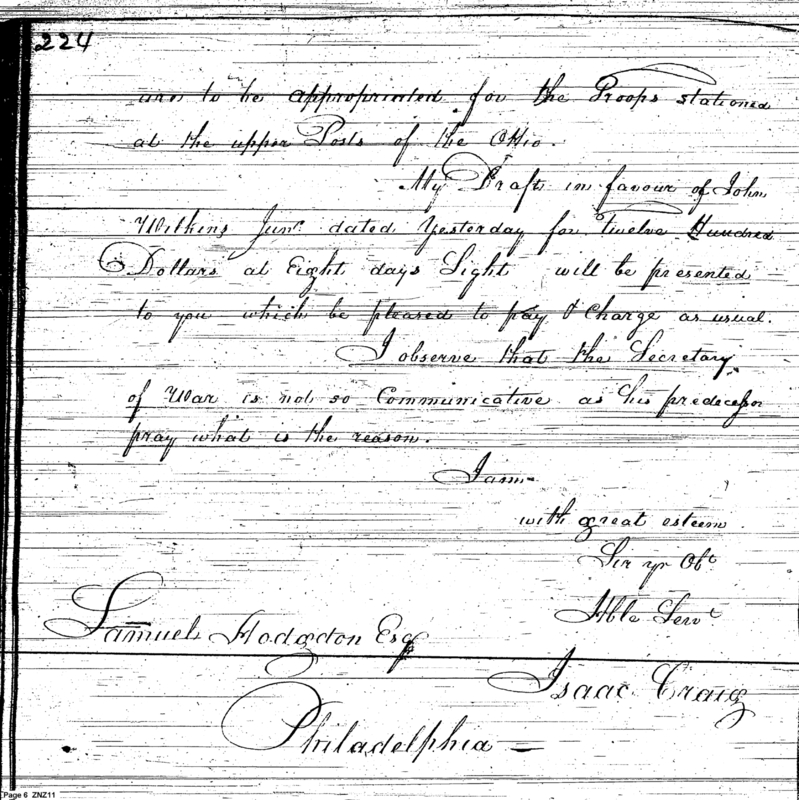 224
are to be appropriated for the Troops stationed
at the upper Posts of the Ohio.
My Draft in favour of John
Wilkins Junr. dated Yesterday for Twelve Hundred
Dollars at Eight days Sight will be presented
to you which be pleased to pay & Charge as usual.
I observe that the Secretary
of War is not so Communicative as his predecessor
pray what is the reason.
I am
with great esteem
Sir yr Obt
Hble Servt
Samuel Hodgdon Esqr
Isaac Craig
Philadelphia —
Page 6 ZNZ11